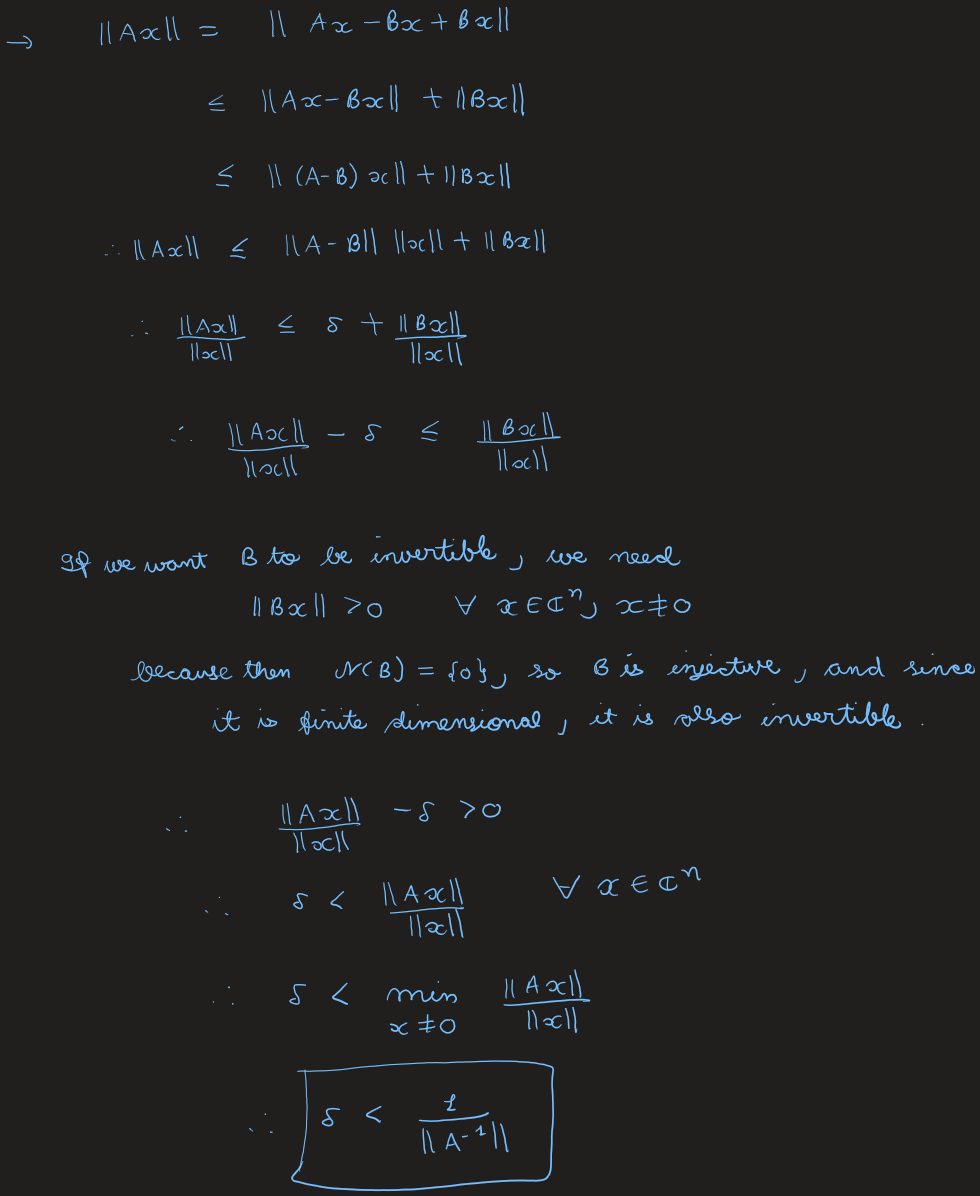 → ||Ax|| = || Ax - Bx + Bx||
≤ ||Ax - Bx|| + ||Bx||
≤ || (A-B) x|| + ||Bx||
∴ ||Ax|| ≤ ||A - B|| ||x|| + ||Bx||
∴ ||Ax||/||x|| ≤ δ + ||Bx||/||x||
∴ ||Ax||/||x|| - δ ≤ ||Bx||/||x||
If we want B to be invertible, we need
||Bx|| > 0 ∀ x ∈ ℂⁿ, x ≠ 0
because then N(B) = {0}, so B is injective, and since
it is finite dimensional, it is also invertible.
∴ ||Ax||/||x|| - δ > 0
∴ δ < ||Ax||/||x|| ∀ x ∈ ℂⁿ
∴ δ < min x≠0 ||Ax||/||x||
∴ δ < 1/||A⁻¹||